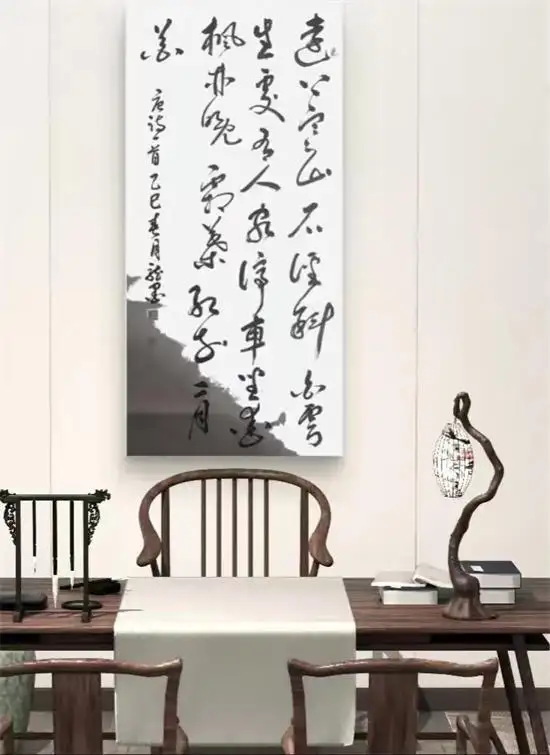 遠上寒山石徑斜白雲
生處有人家停車坐愛
楓林晚霜葉紅於二月
花
唐诗一首乙巳春月